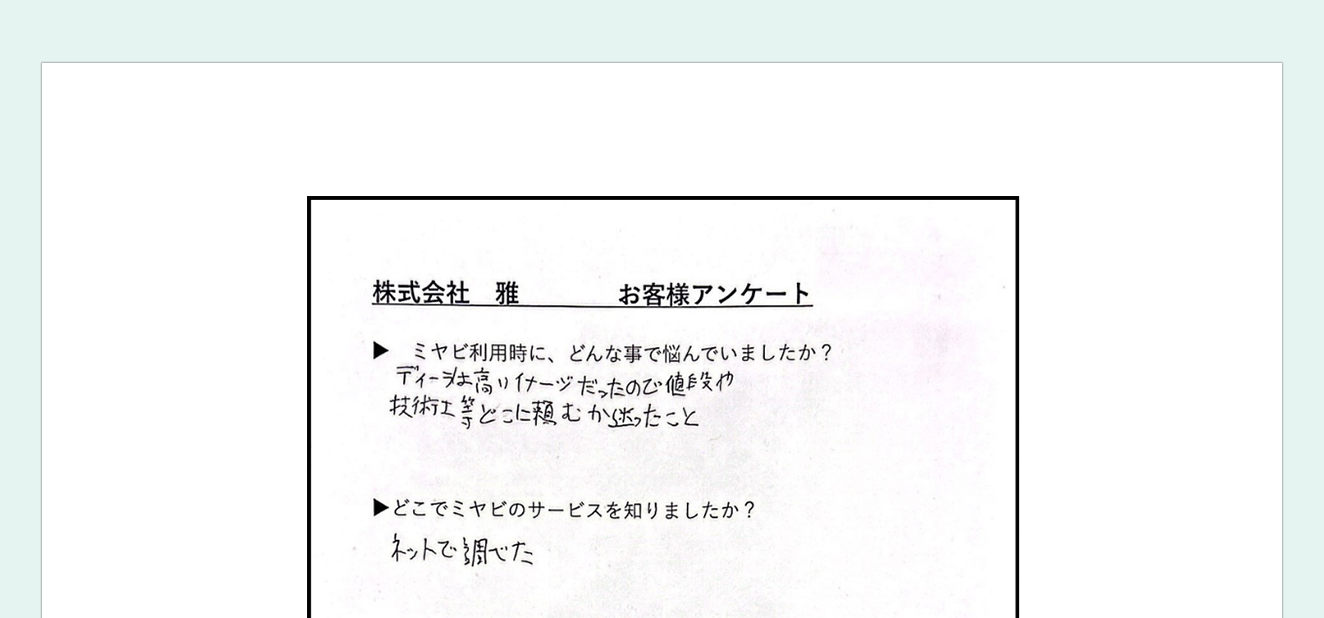 株式会社　雅　　　　お客様アンケート
▶　ミヤビ利用時に、どんな事で悩んでいましたか？
ディーラは高いイメージだったので値段や
技術工等どこに頼むか迷ったこと
▶どこでミヤビのサービスを知りましたか？
ネットで調べた